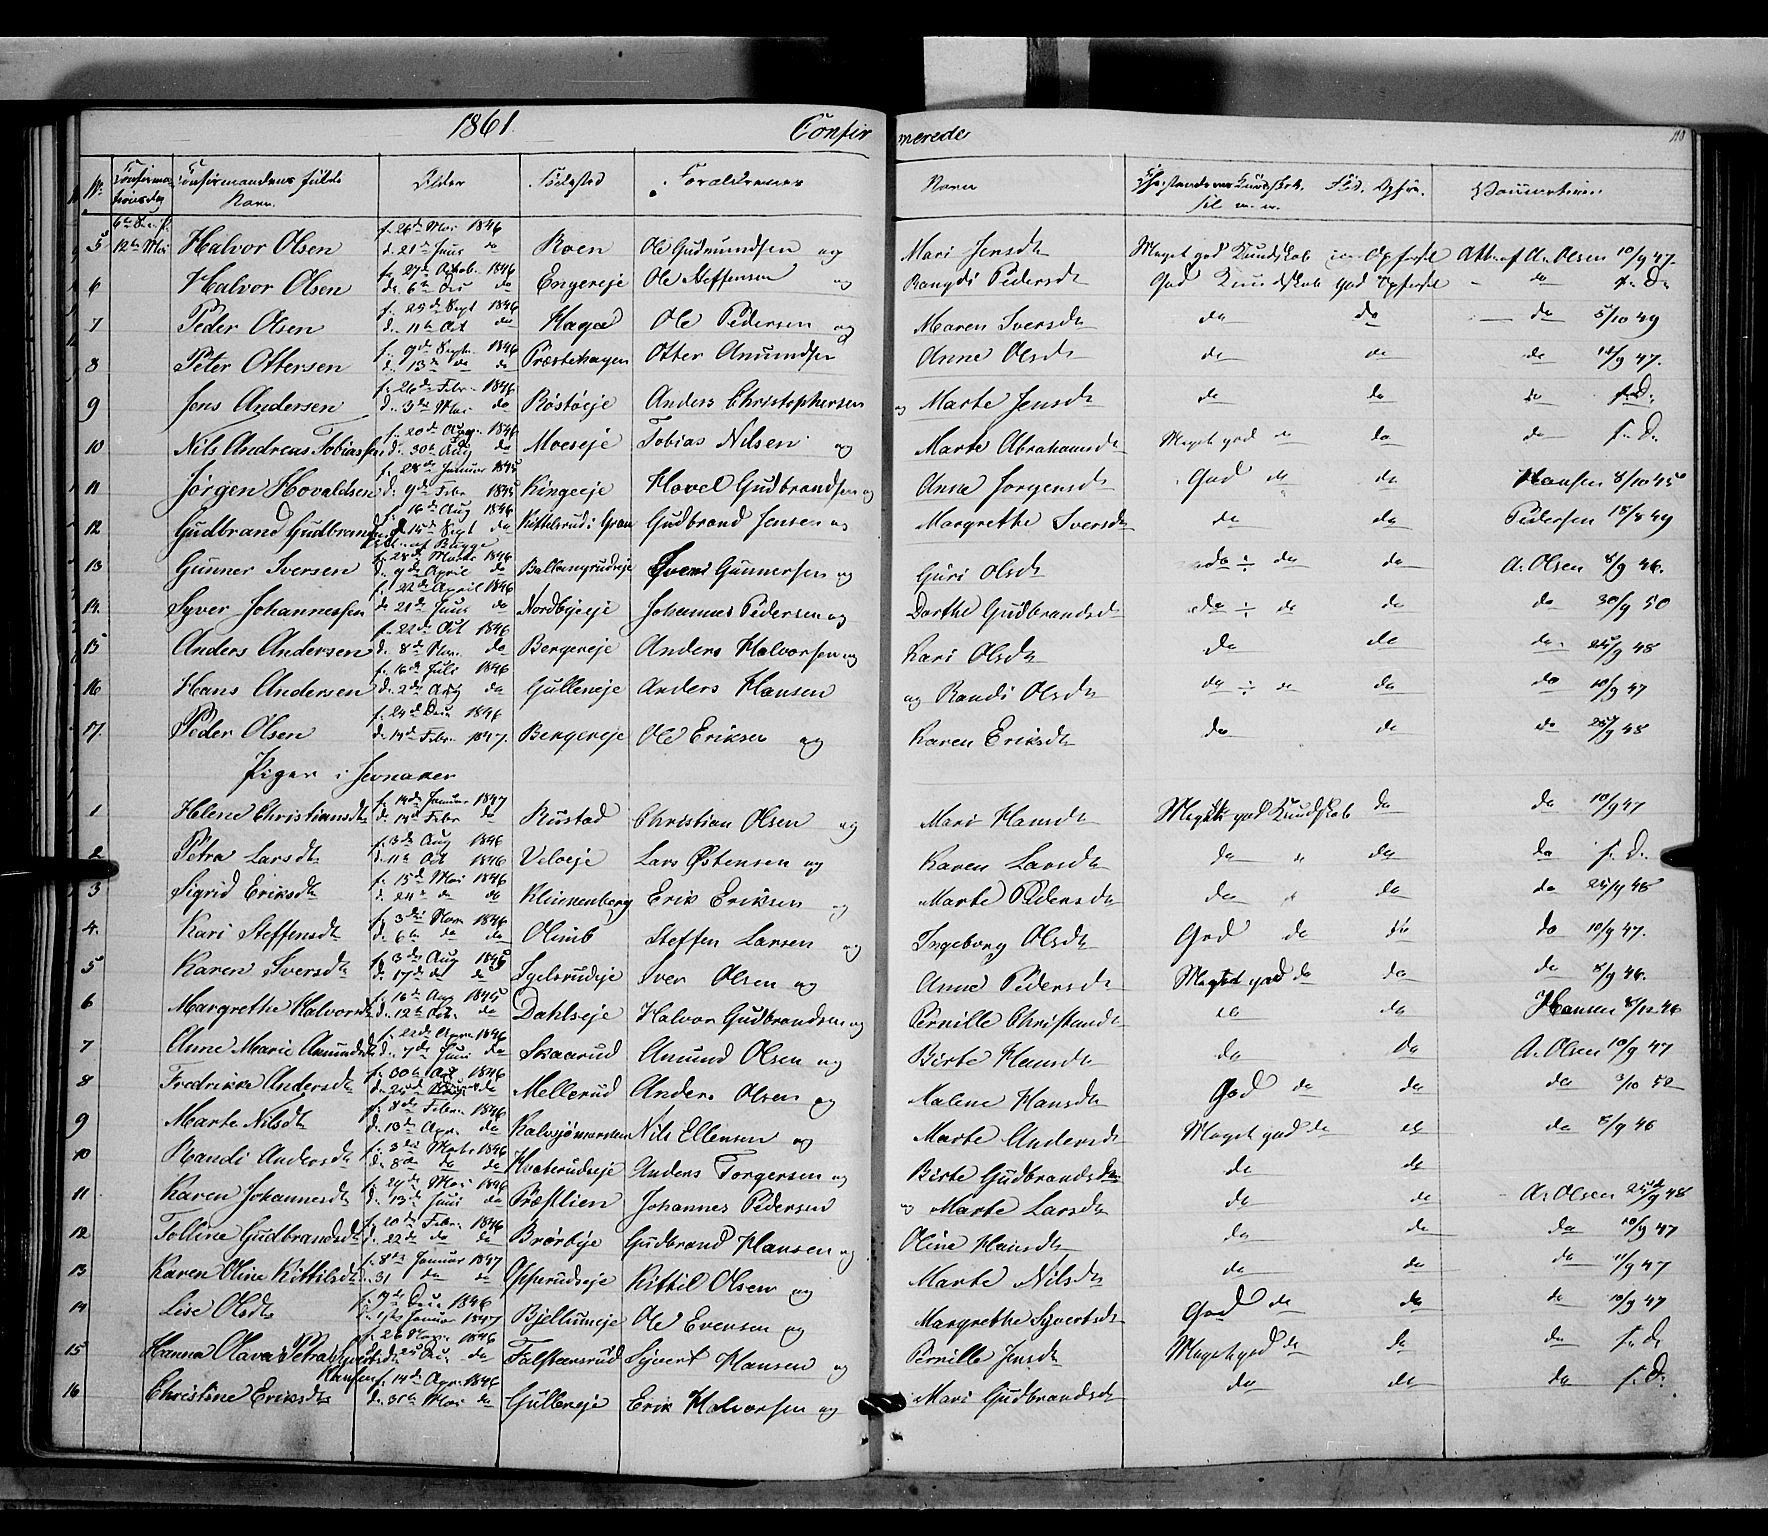 1861. Confirmerede 110
No. Confirmationsdag Confirmandens fulde Navn. Alder Födested Forældrenes Navn Christendoms Kundskab Vaccinationen
6te S. e. P. f. 26de Mai 1846
5 12te Mai Halvor Olsen d. 21de Juni do Roen Ole Gudmundsen og Mari Jensdtr Meget god Kundskab Opførsel Att. af A. Olsen 10/9 47.
6 Halvor Olsen f. 27de Octob. 1846 d. 6te Dec do Engereje Ole Steffensen og Rangdi Pedersdtr God Kundskab god Opførsel do f. D.
7 Peder Olsen f. 29de Sept 1846 d. 11te Oct do Haga Ole Pedersen og Maren Iversdtr do do do 5/10 49
8 Peter Ottersen f. 9de Septr. 1846 d. 13de do do Præstehagen Otter Amundsen og Anne Olsdtr do do do 12/9 47.
9 Jens Andersen f. 26de Febr. 1846 d. 3die Mai do Röstöeje Anders Christophersen og Marte Jensdtr do do do f. D.
10 Nils Andreas Tobiassen f. 20de 1846 d. 30te Aug do Moeseje Tobias Nilsen og Marte Abrahamsdtr Meget god do do do f. D.
11 Jörgen Hovaldsen f. 28de Januar 1845 d. 9de Febr 1845 Ringeeje Hovel Gudbrandsen og Anna Jorgensdtr God do do Hansen 8/10 45
12 Gudbrand Gudbrandsen f. 16de Aug 1846 d. 14de Sept do Kittelsrud i Gran Gudbrand Jensen og Margrethe Iversdtr do do Pedersen 18/8 49
13 Gunner Iversen f. 28de Marts 1846 d. 9de April do Ballangrudeje Iver Gunnersen og Guri Olsdtr do ÷ do do A. Olsen 8/9 46.
14. Syver Johannessen f. 22de April 1846 d. 21de Juni do Nordbyeje Johannes Pedersen og Dorthe Gudbrandsd do ÷ do do do 30/9 50
15 Anders Andersen f. 22de Oct 1846 d. 8de Nov. do Bergereje Anders Halvorsen og Kari Olsdtr do do do 25/9 48
16 Hans Andersen f. 16de Juli 1846 d. 2de Aug do Gulleneje Anders Hansen og Randi Olsdtr do ÷ do do do 10/9 47
17. Peder Olsen f. 24de Decr 1846 d. 14de Febr. 1847. Bergereje Ole Eriksen og Karen Eriksdtr do do do 25/9 48
Piger i Jevnaker
1 Helene Christiansdtr f. 14de Januar 1847 d. 14de Febr do Rustad Christian Olsen og Mari Hansdtr Meget god Kundskab do do 10/9 47
2 Petra Larsdtr f. 13de Aug 1846 d. 11te Oct 1846 Velveje Lars Østensen og Karen Larsdtr do do do f. D.
3 Sigrid Eriksdtr f. 15de Mai 1846 d. 24de do do Klinkenberg Erik Eriksen og Marte Pedersdtr do do do 25/9 48
4. Kari Steffensdtr f. 3die Nov 1846 d. 6te do do Olimb Steffen Larsen og Ingeborg Olsdtr God do do do 10/9 47.
5 Karen Iversdtr f. 3die Aug 1845 d. 17de do do Iver Olsen og Anne Pedersdtr Meget god do do do 8/9 46.
6 Margrethe Halvorsdtr f. 16de Aug 1845 d. 12te Octr. do Dahlseje Halvor Gudbrandsen og Pernille Christiansdtr do do Hansen 8/10 46
7 Anne Marie Amundsdtr f. 22de Apr. 1846 d. 7de Juni do Skaarud Amund Olsen og Birte Hansdtr do do A. Olsen 10/9 47
8 Fredrikke Andersdtr f. 30te Oct 1846 d. 25de do Mellerud Anders Olsen og Malene Hansdtr God do do do 3/10 50
9 Marte Nilsdtr f. 8de Febr. 1846 d. 13de Apr. do Kalvsjömarken Nils Ellensen og Marte Andersdtr Meget god do do do 8/9 46
10 Randi Andersdtr f. 3die Marts 1846 d. 8de do do Hvaterudseje Anders Torgersen og Birte Gudbrandsdtr do do
11 Karen Johannesdtr f. 29de Mai 1846 d. 13de Juni do Præstlien Johannes Pedersen og Marte Larsdtr do do A. Olsen 25/9 48
12 Tolline Gudbrandsdtr f. 20de Febr. 1846 d. 22de do do Brörbyeje Gudbrand Hansen og Oline Hansdtr do do do 10/9 47
13 Karen Oline Kittilsdtr f. 8de Januar 1847 d. 31 do do Opperudseje Kittil Olsen og Marte Nilsdtr do do do 11/9 47
14 Lise Olsdtr f. 19de Decr 1846 d. 1ste Januar 1847 Bjellumeje Ole Evensen og Margrethe Syvertsdtr God do do do 10/9 47
15 Hanna Olava Petra Syvertsdtr Hansen f. 26 Novr. 1846 d. 25 do Falstensrud Syvert Hansen og Pernille Jensdtr Meget god do do do f. D.
16 Christine Eriksdtr f. 14de Apr. 1846 d. 31te Mai do Gulleneje Erik Halvorsen og Mari Gudbrandsdtr do do do f. D.